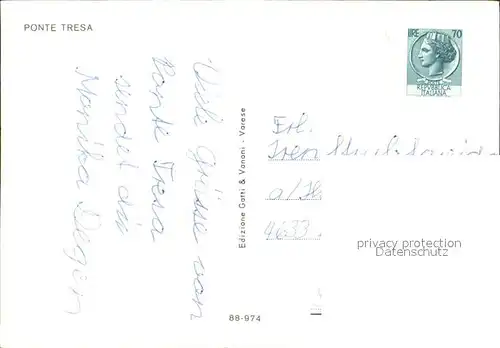 PONTE TRESA
LIRE 70
REPUBBLICA
ITALIANA
Viele Grüsse von
Ponte Tresa
sendet dir
Monika Degen
Edizione Gatti & Vanoni - Varese
Frl.
a/
4633
privacy protection
Datenschutz
88-974